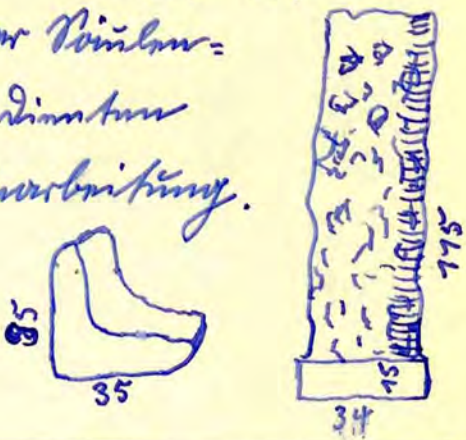 er Säulen=
dienten
narbeitung.
35
175
15
34